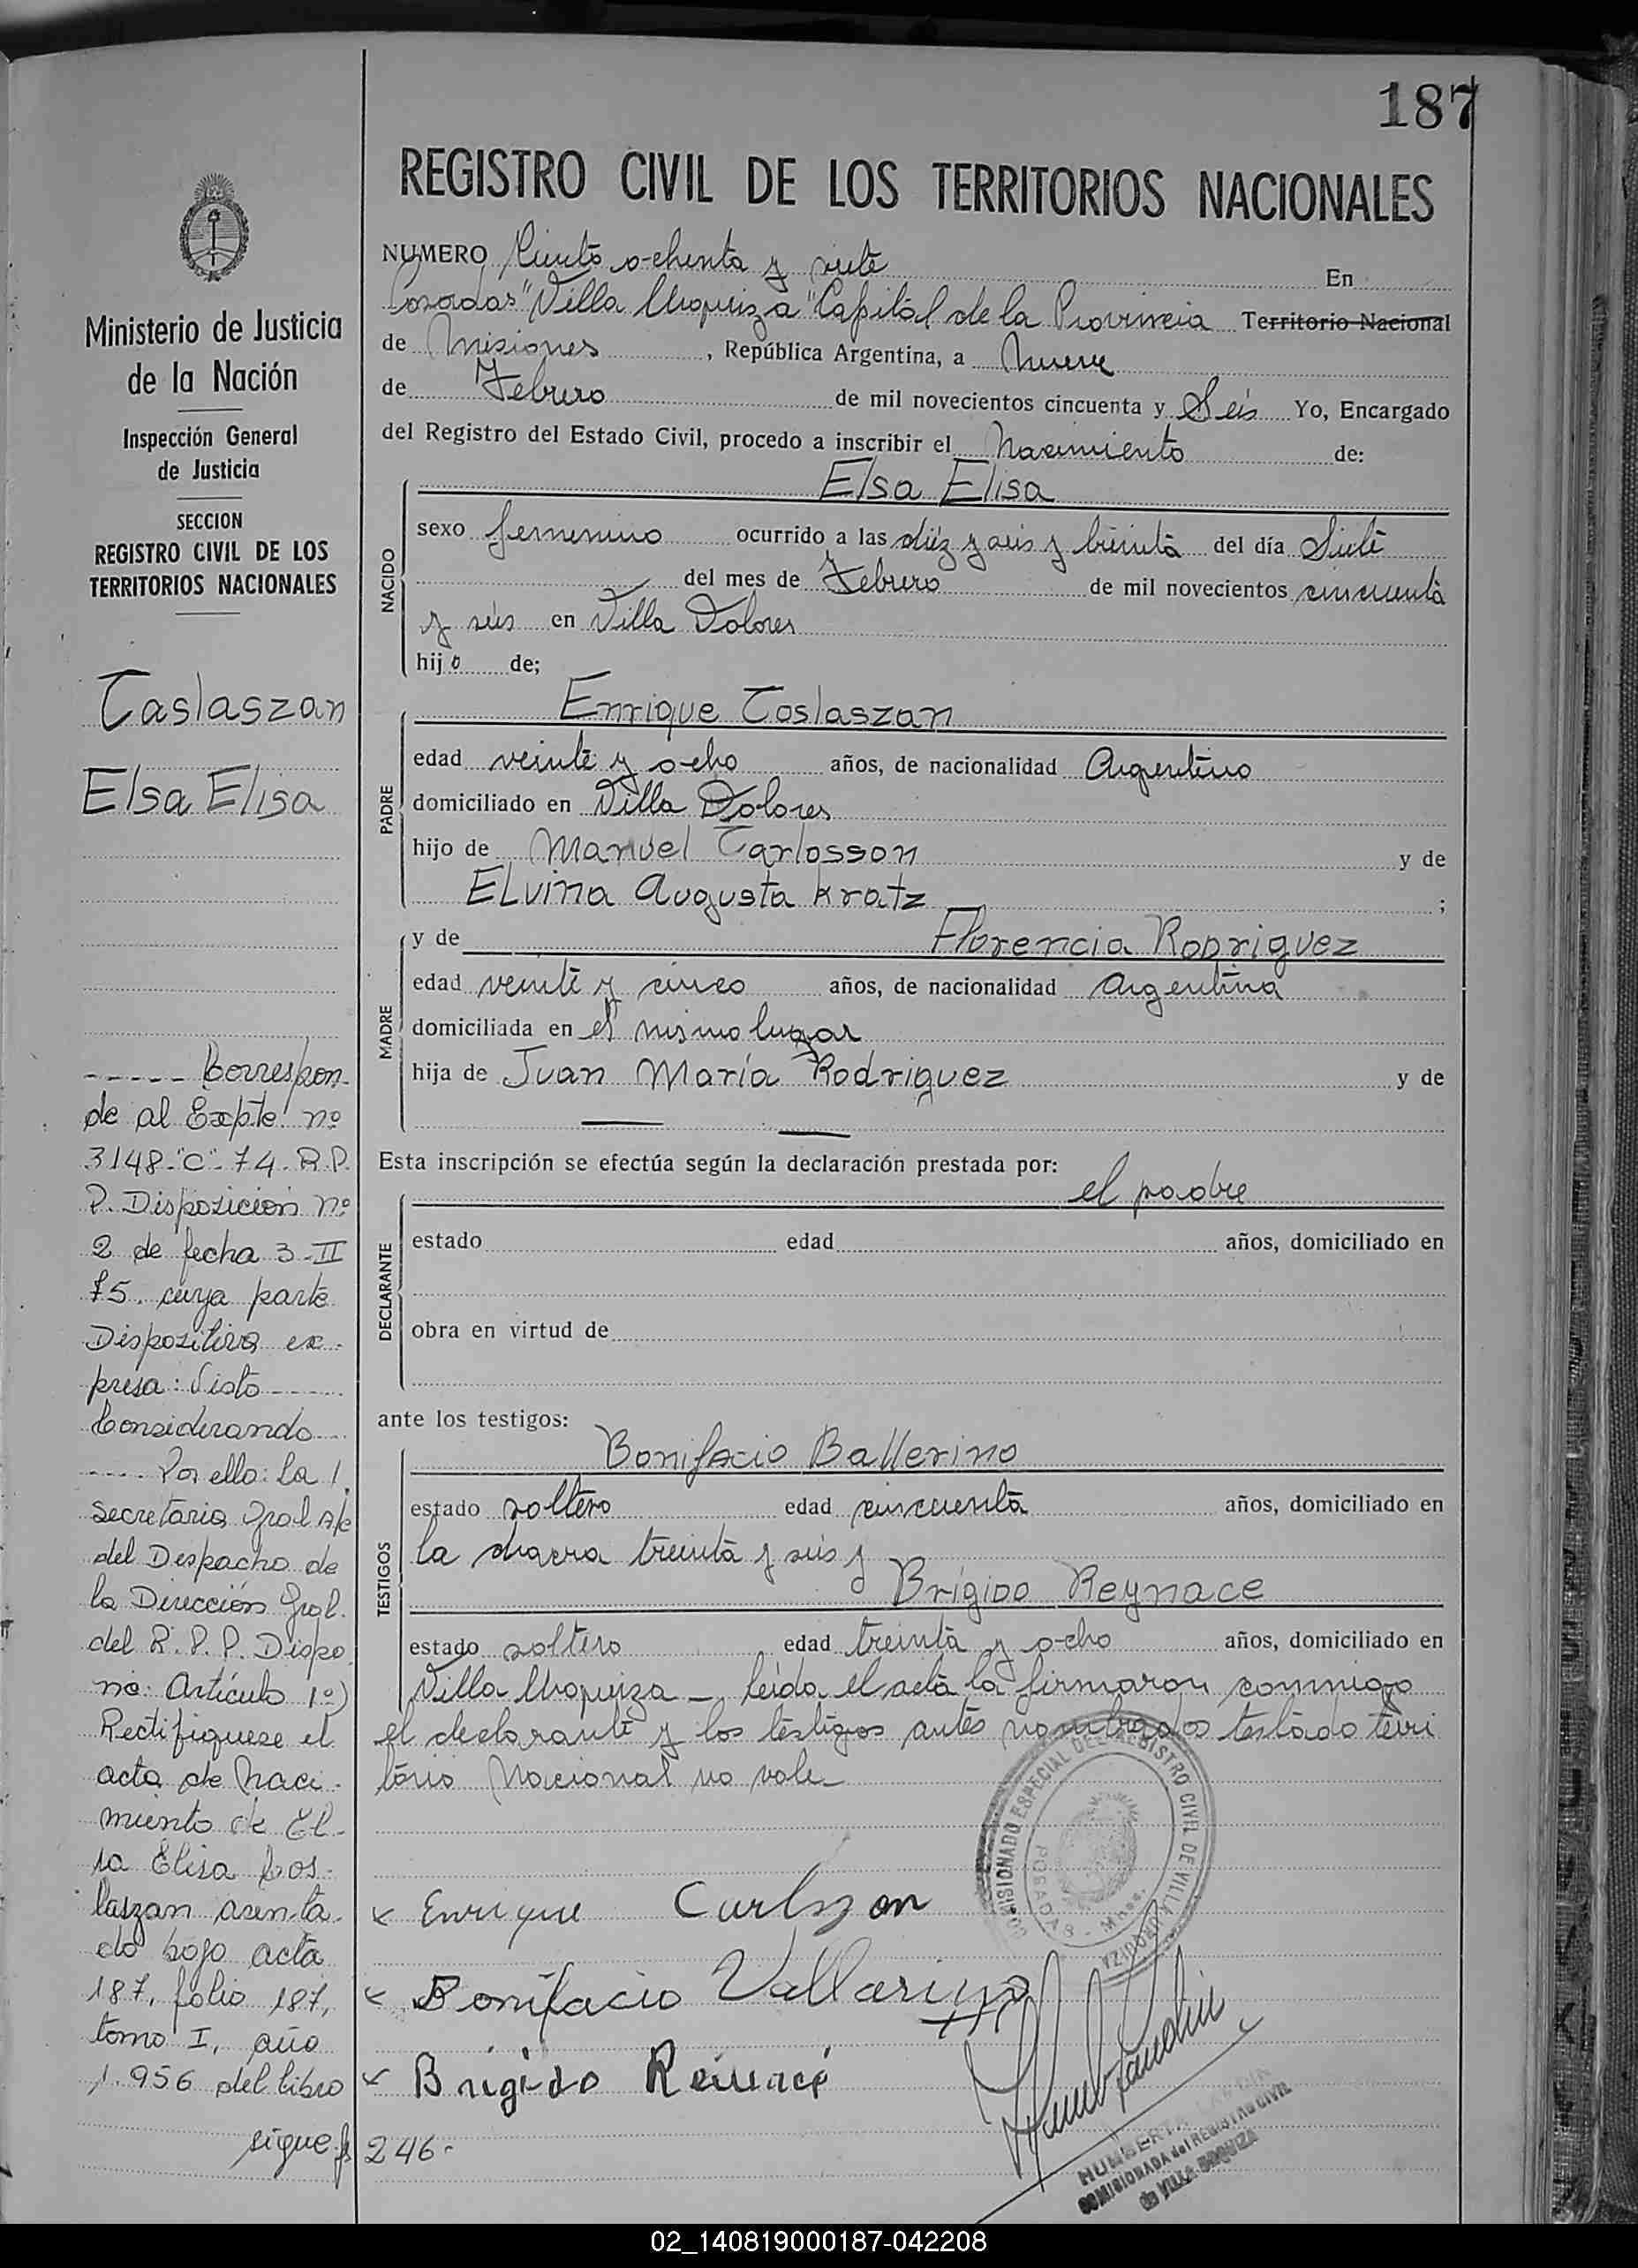 187
REGISTRO CIVIL DE LOS TERRITORIOS NACIONALES
Ministerio de Justicia
de la Nación
Inspección General
de Justicia
SECCION
REGISTRO CIVIL DE LOS
TERRITORIOS NACIONALES
Caslaszan
Elsa Elisa
----- Correspon-
de al Expte. nº
3148-"C"-74-R.P.
P. Disposición nº
2 de fecha 3-II
75. cuya parte
Dispositiva ex-
presa: Visto ----
Considerando ---
---- Por ello: La
Secretaria Gral A/c
del Despacho de
la Dirección Gral.
del R.P.P. Dispo
ne: Artículo 1º)
Rectifiquese el
acta de Naci-
miento de El-
sa Elisa Cos-
laszan asenta-
do bajo acta
187, folio 187,
tomo I, año
1.956 del libro
sigue fs 246-
NUMERO Ciento ochenta y siete En
Posadas "Villa Urquiza" Capital de la Provincia Territorio Nacional
de Misiones, República Argentina, a Nueve
de Febrero de mil novecientos cincuenta y Seis Yo, Encargado
del Registro del Estado Civil, procedo a inscribir el Nacimiento de:
Elsa Elisa
NACIDO
sexo femenino ocurrido a las diez y seis y treinta del día Siete
del mes de Febrero de mil novecientos cincuenta
y seis en Villa Dolores
hijo de;
Enrique Coslaszan
PADRE
edad veinte y ocho años, de nacionalidad Argentino
domiciliado en Villa Dolores
hijo de Manuel Carlosson y de
Elvina Augusta Kratz ;
MADRE
y de Florencia Rodriguez
edad veinte y cinco años, de nacionalidad Argentina
domiciliada en el mismo lugar
hija de Juan María Rodriguez y de
Esta inscripción se efectúa según la declaración prestada por:
el padre
DECLARANTE
estado edad años, domiciliado en
obra en virtud de
ante los testigos:
Bonifacio Ballerino
TESTIGOS
estado soltero edad cincuenta años, domiciliado en
la chacra treinta y seis y
Brigido Reynace
estado soltero edad treinta y ocho años, domiciliado en
Villa Urquiza - leida el acta la firmaron conmigo
el declarante y los testigos antes nombrados testado terri
torio Nacional no vale-
COMISIONADO ESPECIAL DEL REGISTRO CIVIL DE VILLA URQUIZA
POSADAS - Mnes.
x Enrique Carlszon
x Bonifacio Vallarino
x Brigido Reinace
COMISIONADA del REGISTRO CIVIL
de VILLA URQUIZA
02_140819000187-042208